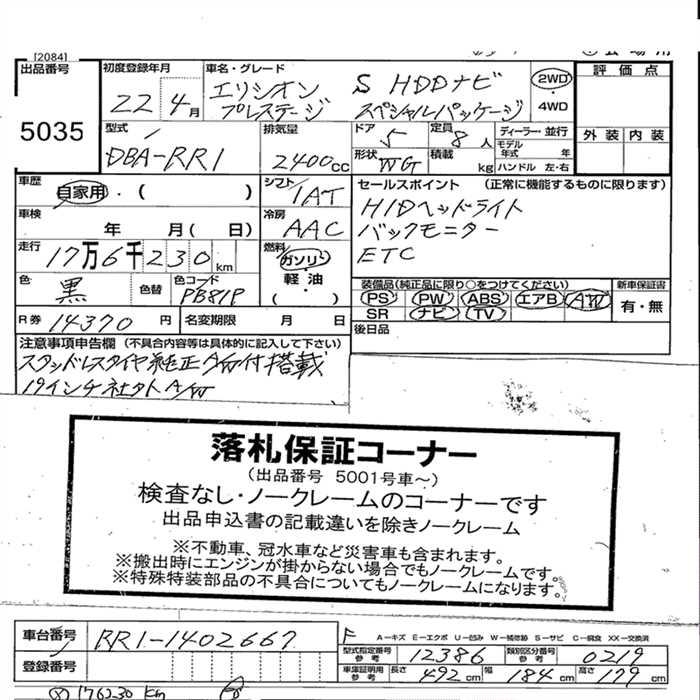 [2084]
出品番号 5035
初度登録年月 22年 4月
車名・グレード エリシオン プレステージ S HDDナビ スペシャルパッケージ
2WD ・ 4WD
評価点
外装 内装
型式 DBA-RR1
排気量 2400cc
ドア 5
定員 8人
ディーラー・並行
モデル年式 年
形状 WG
積載 kg
ハンドル 左・右
車歴 自家用・( )
シフト IAT
セールスポイント (正常に機能するものに限ります)
HIDヘッドライト
バックモニター
ETC
車検 年 月( 日)
冷房 AAC
走行 17万6千230km
燃料 ガソリン・軽油・( )
色 黒
色替
色コード PB81P
装備品(純正品に限り○をつけてください)
PS PW ABS エアB AW
SR ナビ TV
新車保証書 有・無
R券 14370円
名変期限 月 日
後日品
注意事項申告欄 (不具合内容等は具体的に記入して下さい)
スタッドレスタイヤ純正A/W付搭載
19インチ社外A/W
落札保証コーナー
(出品番号 5001号車~)
検査なし・ノークレームのコーナーです
出品申込書の記載違いを除きノークレーム
※不動車、冠水車など災害車も含まれます。
※搬出時にエンジンが掛からない場合でもノークレームです。
※特殊特装部品の不具合についてもノークレームになります。
車台番号 RR1-1402667
F A-キズ E-エクボ U-凹み W-補修跡 S-サビ C-腐食 XX-交換済
型式指定番号 参考 12386
類別区分番号 参考 0219
登録番号
車庫証明用 参考 長さ 492cm 幅 184cm 高さ 179cm
176230 Km